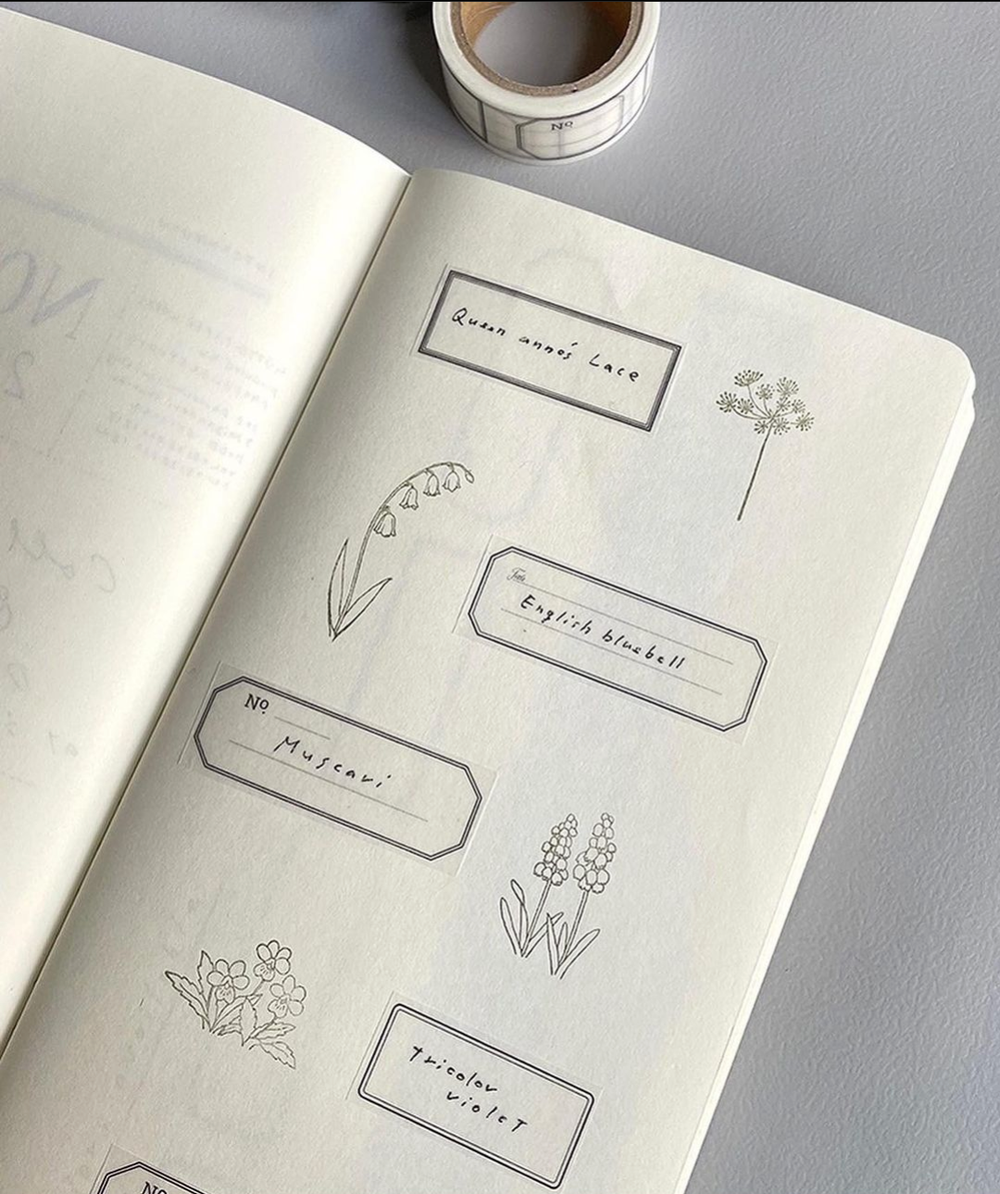 Nº
Queen anne's Lace
Title
English bluebell
Nº
Muscari
tricolor
violet
Nº